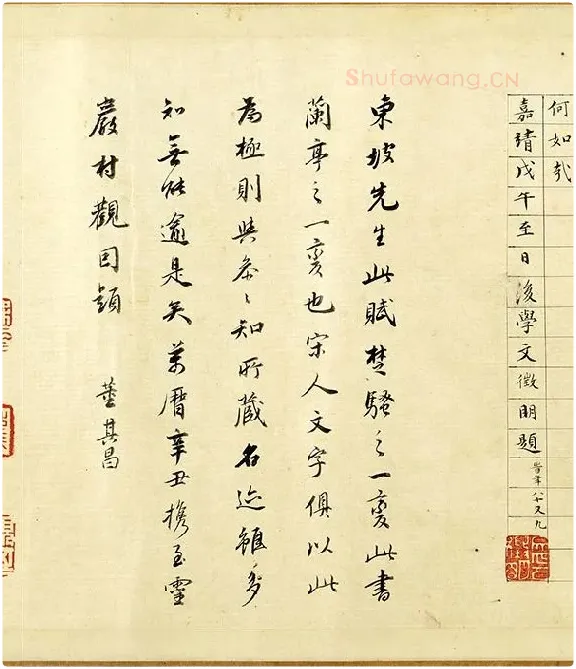 Shufawang.CN
何如哉
嘉靖戊午至日後學文徵明題
時年八十又九
東坡先生此賦楚騷之一變此書
蘭亭之一變也宋人文字俱以此
為極則與參參知所藏名迹雖多
知無能逾是矣萬曆辛丑攜至靈
巖村觀因題
董其昌